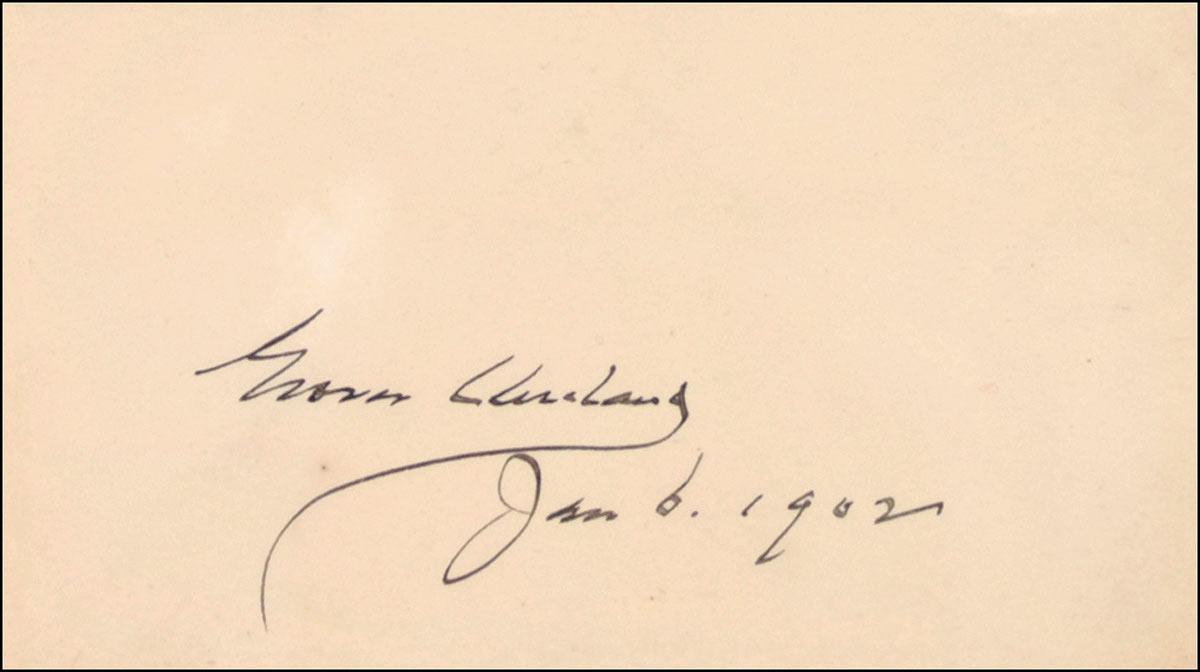 Grover Cleveland
Jan 6. 1902